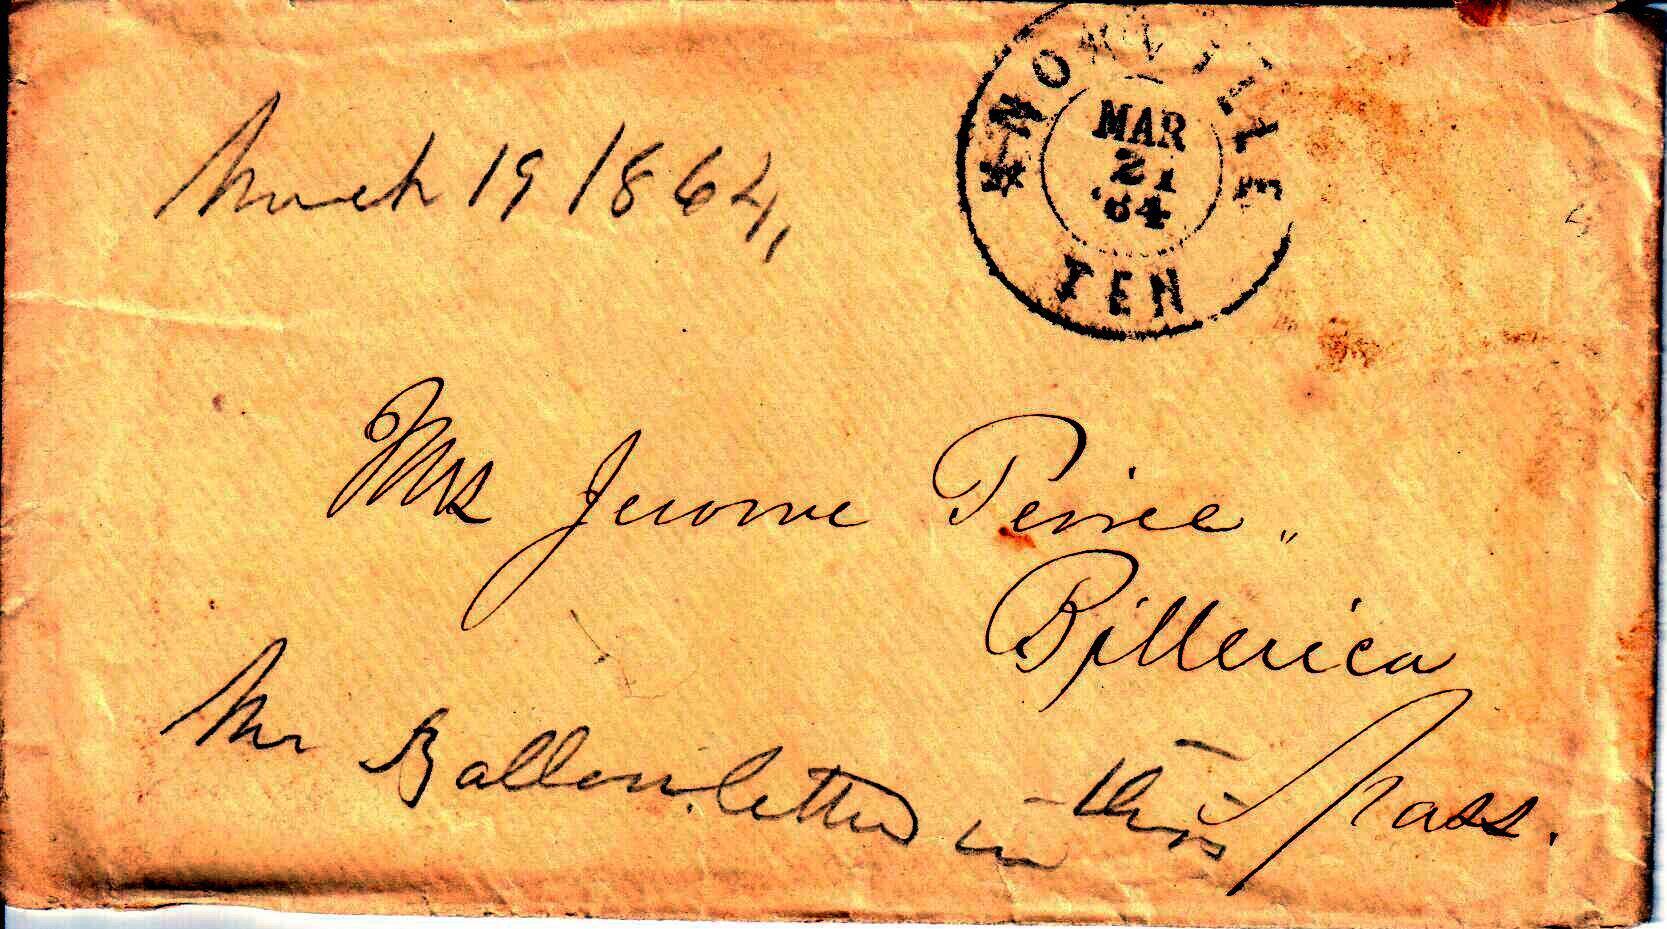 KNOXVILLE
MAR
21
'64
TEN
March 19 1864,
Mrs Jerome Peirce
Billerica
Mass.
Mr Ballou letter in this